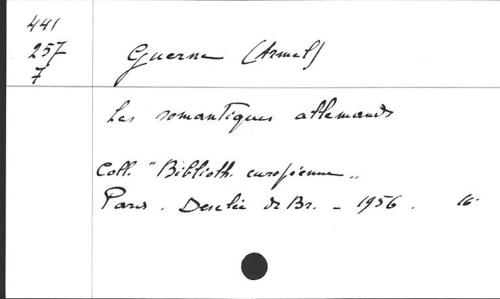 441
257
7
Guerne (Armel)
Les romantiques allemands
Coll. "Biblioth. européenne"
Paris. Desclée de Br. - 1956. 16°